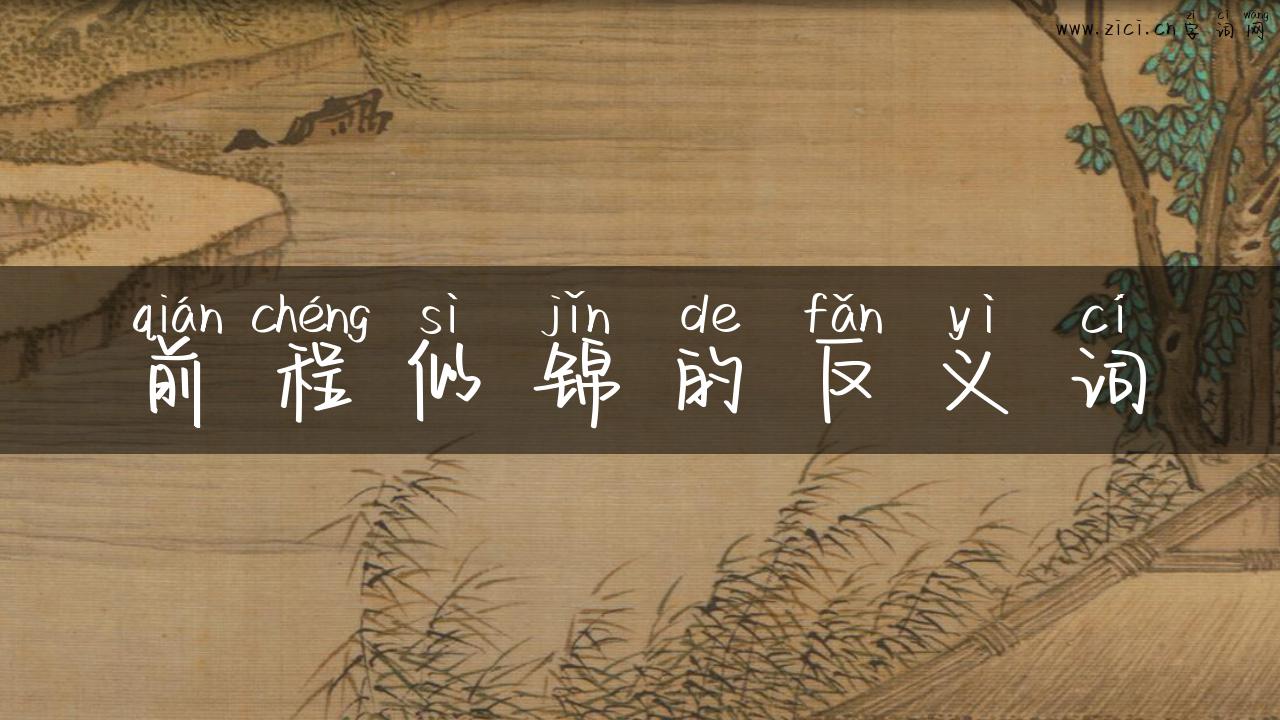 zì cí wǎng
www.zici.cn字词网
qián chéng sì jǐn de fǎn yì cí
前程似锦的反义词